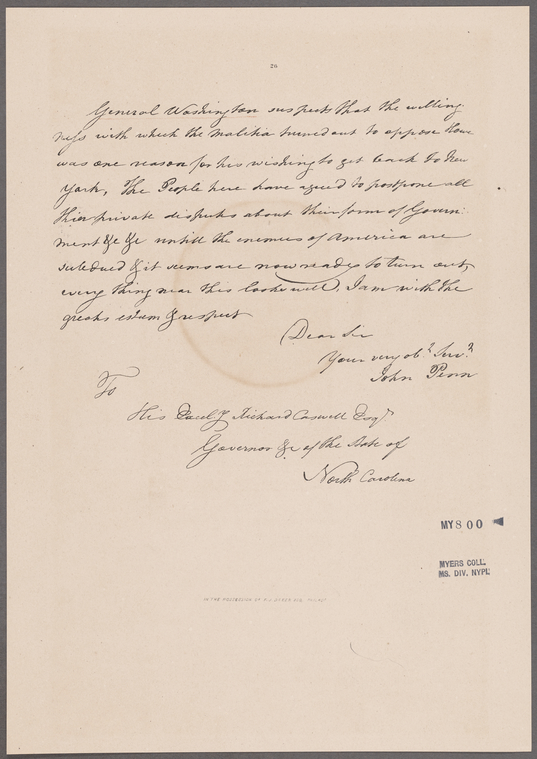 General Washington suspects that the willing
ness with which the Malitia turned out to oppose Howe
was one reason for his wishing to get back to New
York, The People here have agreed to postpone all
thier private disputs about their form of Govern
ment &c &c untill the enemies of America are
subdued & it seems are now ready to turn out,
every thing near this looks well, I am with the
greates esteam & respect
Dear Sir
Your very obt. Servt.
John Penn
To
His Excely Richard Caswell Esqr
Governor &c of the State of
North Carolina
MY800
MYERS COLL.
MS. DIV. NYPL
IN THE POSSESSION OF